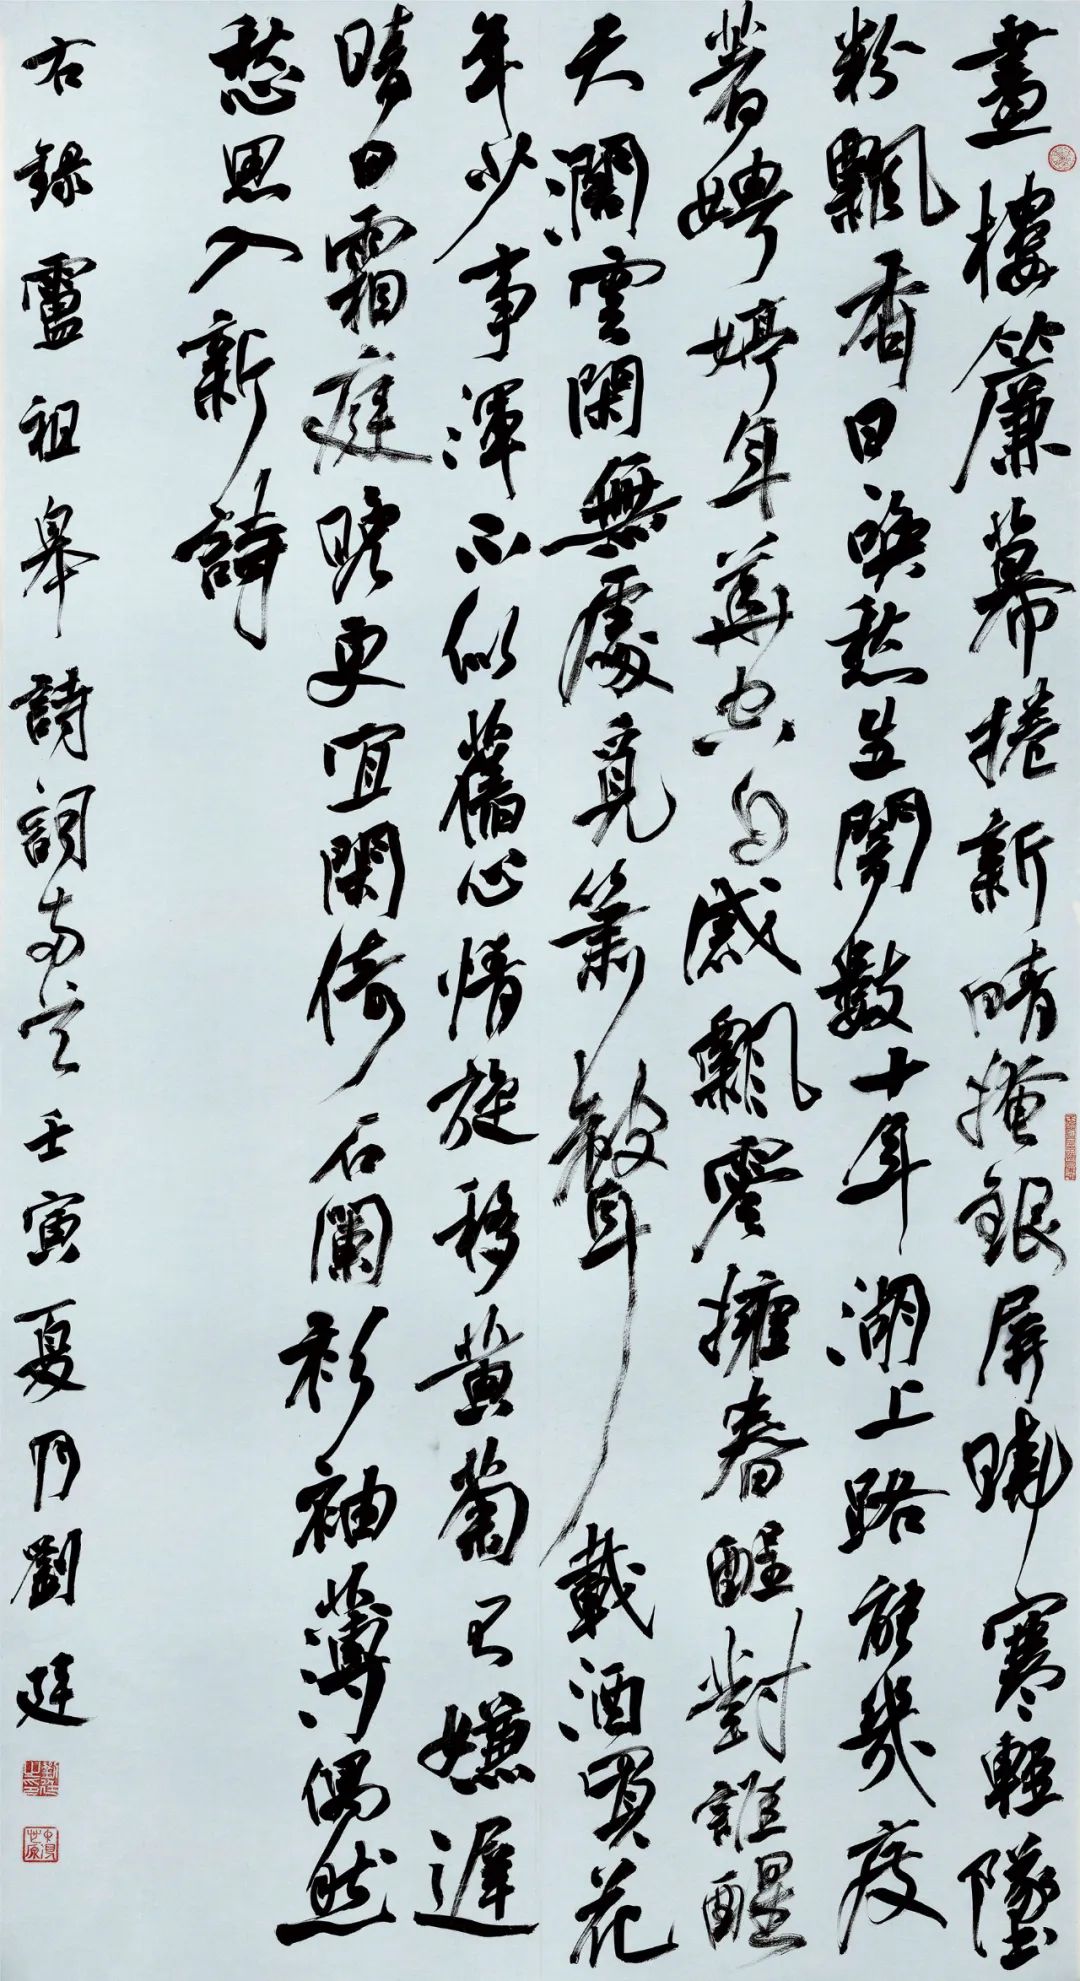 畫樓簾幕捲新晴掩銀屏曉寒輕墜
粉飄香日喚愁生闇數十年湖上路能幾度
著娉婷年華空自感飄零擁春酲對誰醒
天濶雲閑無處覓簫聲載酒買花
年少事渾不似舊心情旋移黃菊已嫌遲
晴日霜庭晚更宜閑倚石闌衫袖薄偶然
愁思入新詩
右錄盧祖皋詩詞兩首壬寅夏月劉廷